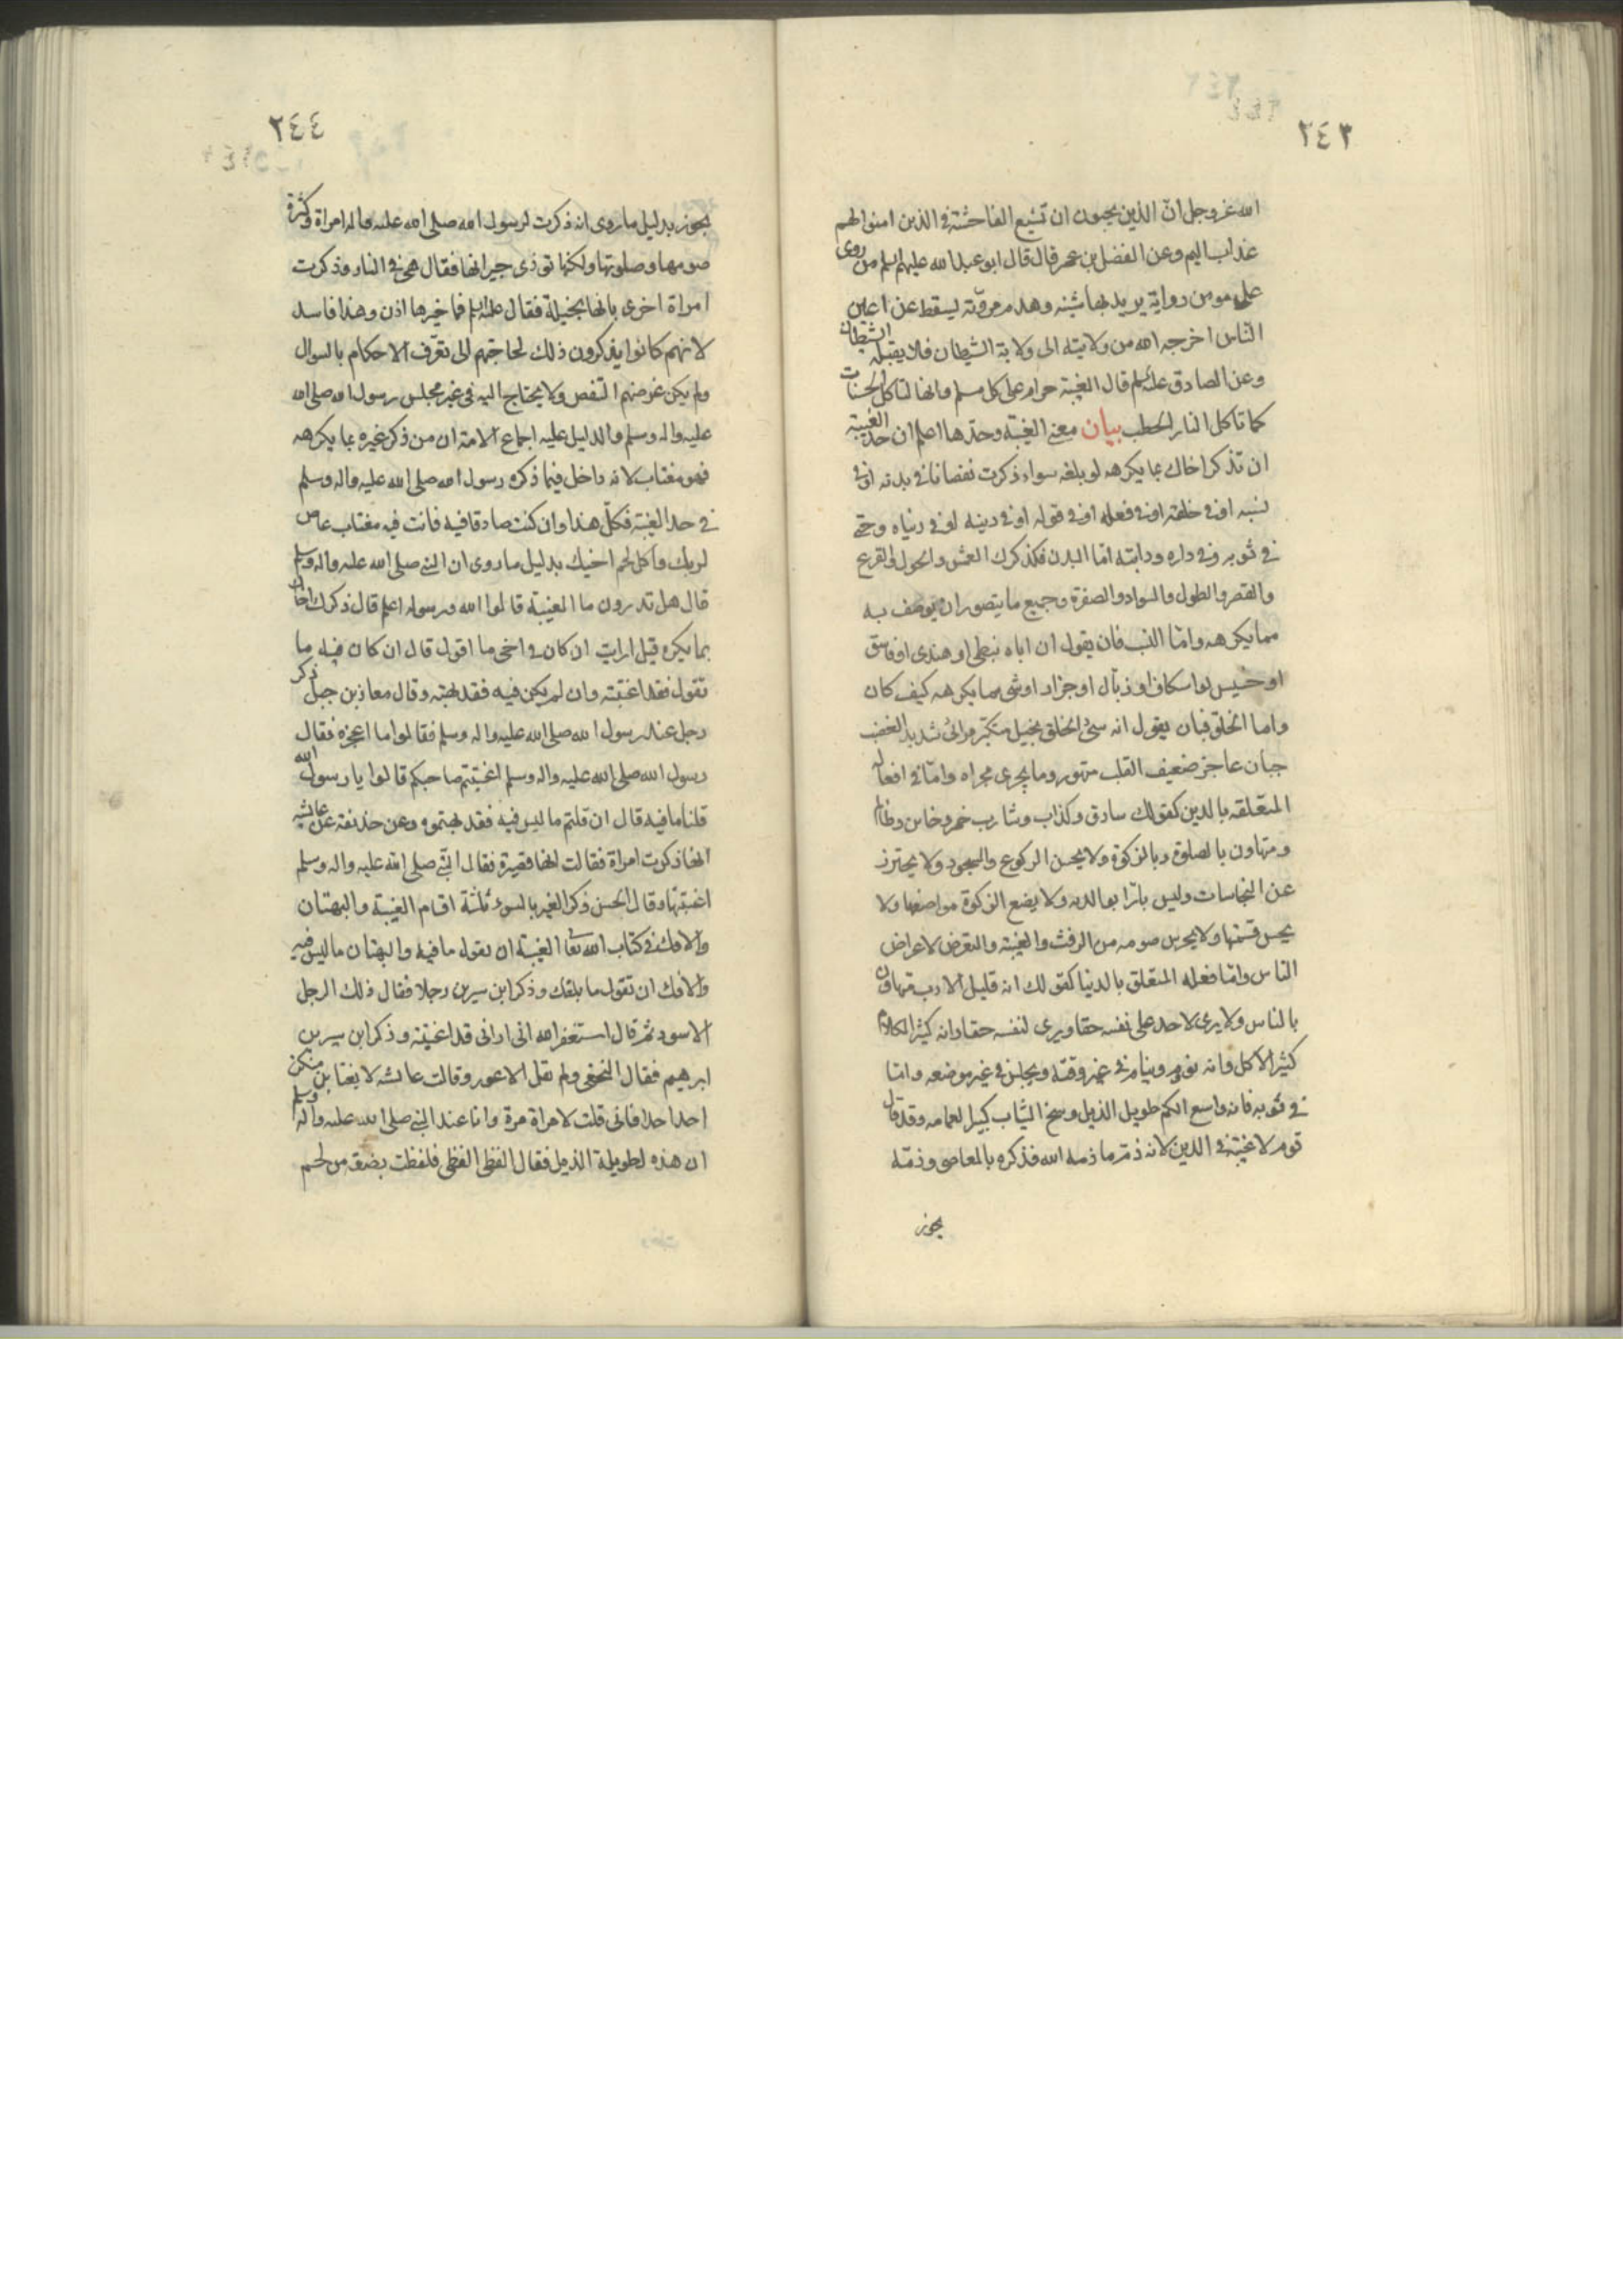 ٢٤٣
الله عز وجل ان الذين يحبون ان تشيع الفاحشة في الذين امنوا لهم
عذاب اليم وعن الفضل بن عمر قال قال ابو عبد الله عليهم السلم من روى
على مومن رواية يريد بها شينه وهدم مروته ليسقط عن اعين
الناس اخرجه الله من ولايته الى ولاية الشيطان فلا يقبله الشيطان
وعن الصادق عليه السلم قال الغيبة حرام على كل مسلم وانها لتاكل الحسنات
كما تاكل النار الحطب بيان معنى الغيبة وحدها اعلم ان حد الغيبة
ان تذكر اخاك بما يكرهه لو بلغه سواء ذكرت نقصانا في بدنه او في
نسبه او في خلقه او في فعله او في قوله او في دينه او في دنياه وحتى
في ثوبه وفي داره ودابته اما البدن فكذكرك العمش والحول والقرع
والقصر والطول والسواد والصفرة وجميع ما يتصور ان يوصف به
مما يكرهه واما النسب فان يقول ان اباه نبطى او هندى او فاسق
او خسيس او اسكاف او زبال او جزار او شى مما يكرهه كيف كان
واما الخلق فبان يقول انه سئ الخلق بخيل متكبر مرائى شديد الغضب
جبان عاجز ضعيف القلب متهور وما يجرى مجراه واما في افعاله
المتعلقه بالدين كقولك سارق وكذاب وشارب خمر وخاين وظالم
ومتهاون بالصلوة وبالزكوة ولا يحسن الركوع والسجود ولا يحترز
عن النجاسات وليس بارا بوالديه ولا يضع الزكوة مواضعها ولا
يحسن قسمتها ولا يحرس صومه من الرفث والغيبة والتعرض لاعراض
الناس واما فعله المتعلق بالدنيا كقولك انه قليل الادب متهاون
بالناس ولا يرى لاحد على نفسه حقا ويرى لنفسه حقا وانه كثير الكلام
كثير الاكل وانه نوم وينام في غير وقته ويجلس في غير موضعه واما
في ثوبه فانه واسع الكم طويل الذيل وسخ الثياب كبير العمامه وقد قال
قوم لا غيبة في الدين لانه ذم ما ذمه الله فذكره بالمعاصى وذمه
يجوز
٢٤٤
يجوز بدليل ما روى انه ذكرت لرسول الله صلى الله عليه واله امراة وكثرة
صومها وصلوتها ولكنها توذى جيرانها فقال هي في النار وذكرت
امراة اخرى بانها بخيلة فقال عليه السلم فما خيرها اذن وهذا فاسد
لانهم كانوا يذكرون ذلك لحاجتهم الى تعرف الاحكام بالسوال
ولم يكن غرضهم التنقص ولا يحتاج اليه في غير مجلس رسول الله صلى الله
عليه واله وسلم والدليل عليه اجماع الامة ان من ذكر غيره بما يكرهه
فهو مغتاب لانه داخل فيما ذكره رسول الله صلى الله عليه واله وسلم
في حد الغيبة فكل هذا وان كنت صادقا فيه فانت فيه مغتاب عاص
لربك واكل لحم اخيك بدليل ما روى ان النبي صلى الله عليه واله وسلم
قال هل تدرون ما الغيبة قالوا الله ورسوله اعلم قال ذكرك اخاك
بما يكره قيل ارايت ان كان في اخى ما اقول قال ان كان فيه ما
تقول فقد اغتبته وان لم يكن فيه فقد بهته وقال معاذ بن جبل ذكر
رجل عند رسول الله صلى الله عليه واله وسلم فقالوا ما اعجزه فقال
رسول الله صلى الله عليه واله وسلم اغتبتم صاحبكم قالوا يا رسول الله
قلنا ما فيه قال ان قلتم ما ليس فيه فقد بهتموه وعن حذيفة عن عايشه
انها ذكرت امراة فقالت انها قصيرة فقال النبي صلى الله عليه واله وسلم
اغتبتها وقال الحسن ذكر الغير بالسوء ثلثة اقسام الغيبة والبهتان
والافك في كتاب الله تعا الغيبة ان تقول ما فيه والبهتان ما ليس فيه
والافك ان تقول ما بلغك وذكر ابن سيرين رجلا فقال ذلك الرجل
الاسود ثم قال استغفر الله انى ارانى قد اغتبته وذكر ابن سيرين
ابرهيم فقال النخعى ولم يقل الاعور وقالت عايشه لا يغتابن منكن
احد احدا فانى قلت لامراة مرة وانا عند النبي صلى الله عليه واله وسلم
ان هذه لطويلة الذيل فقال الفظى الفظى فلفظت بضعة من لحم